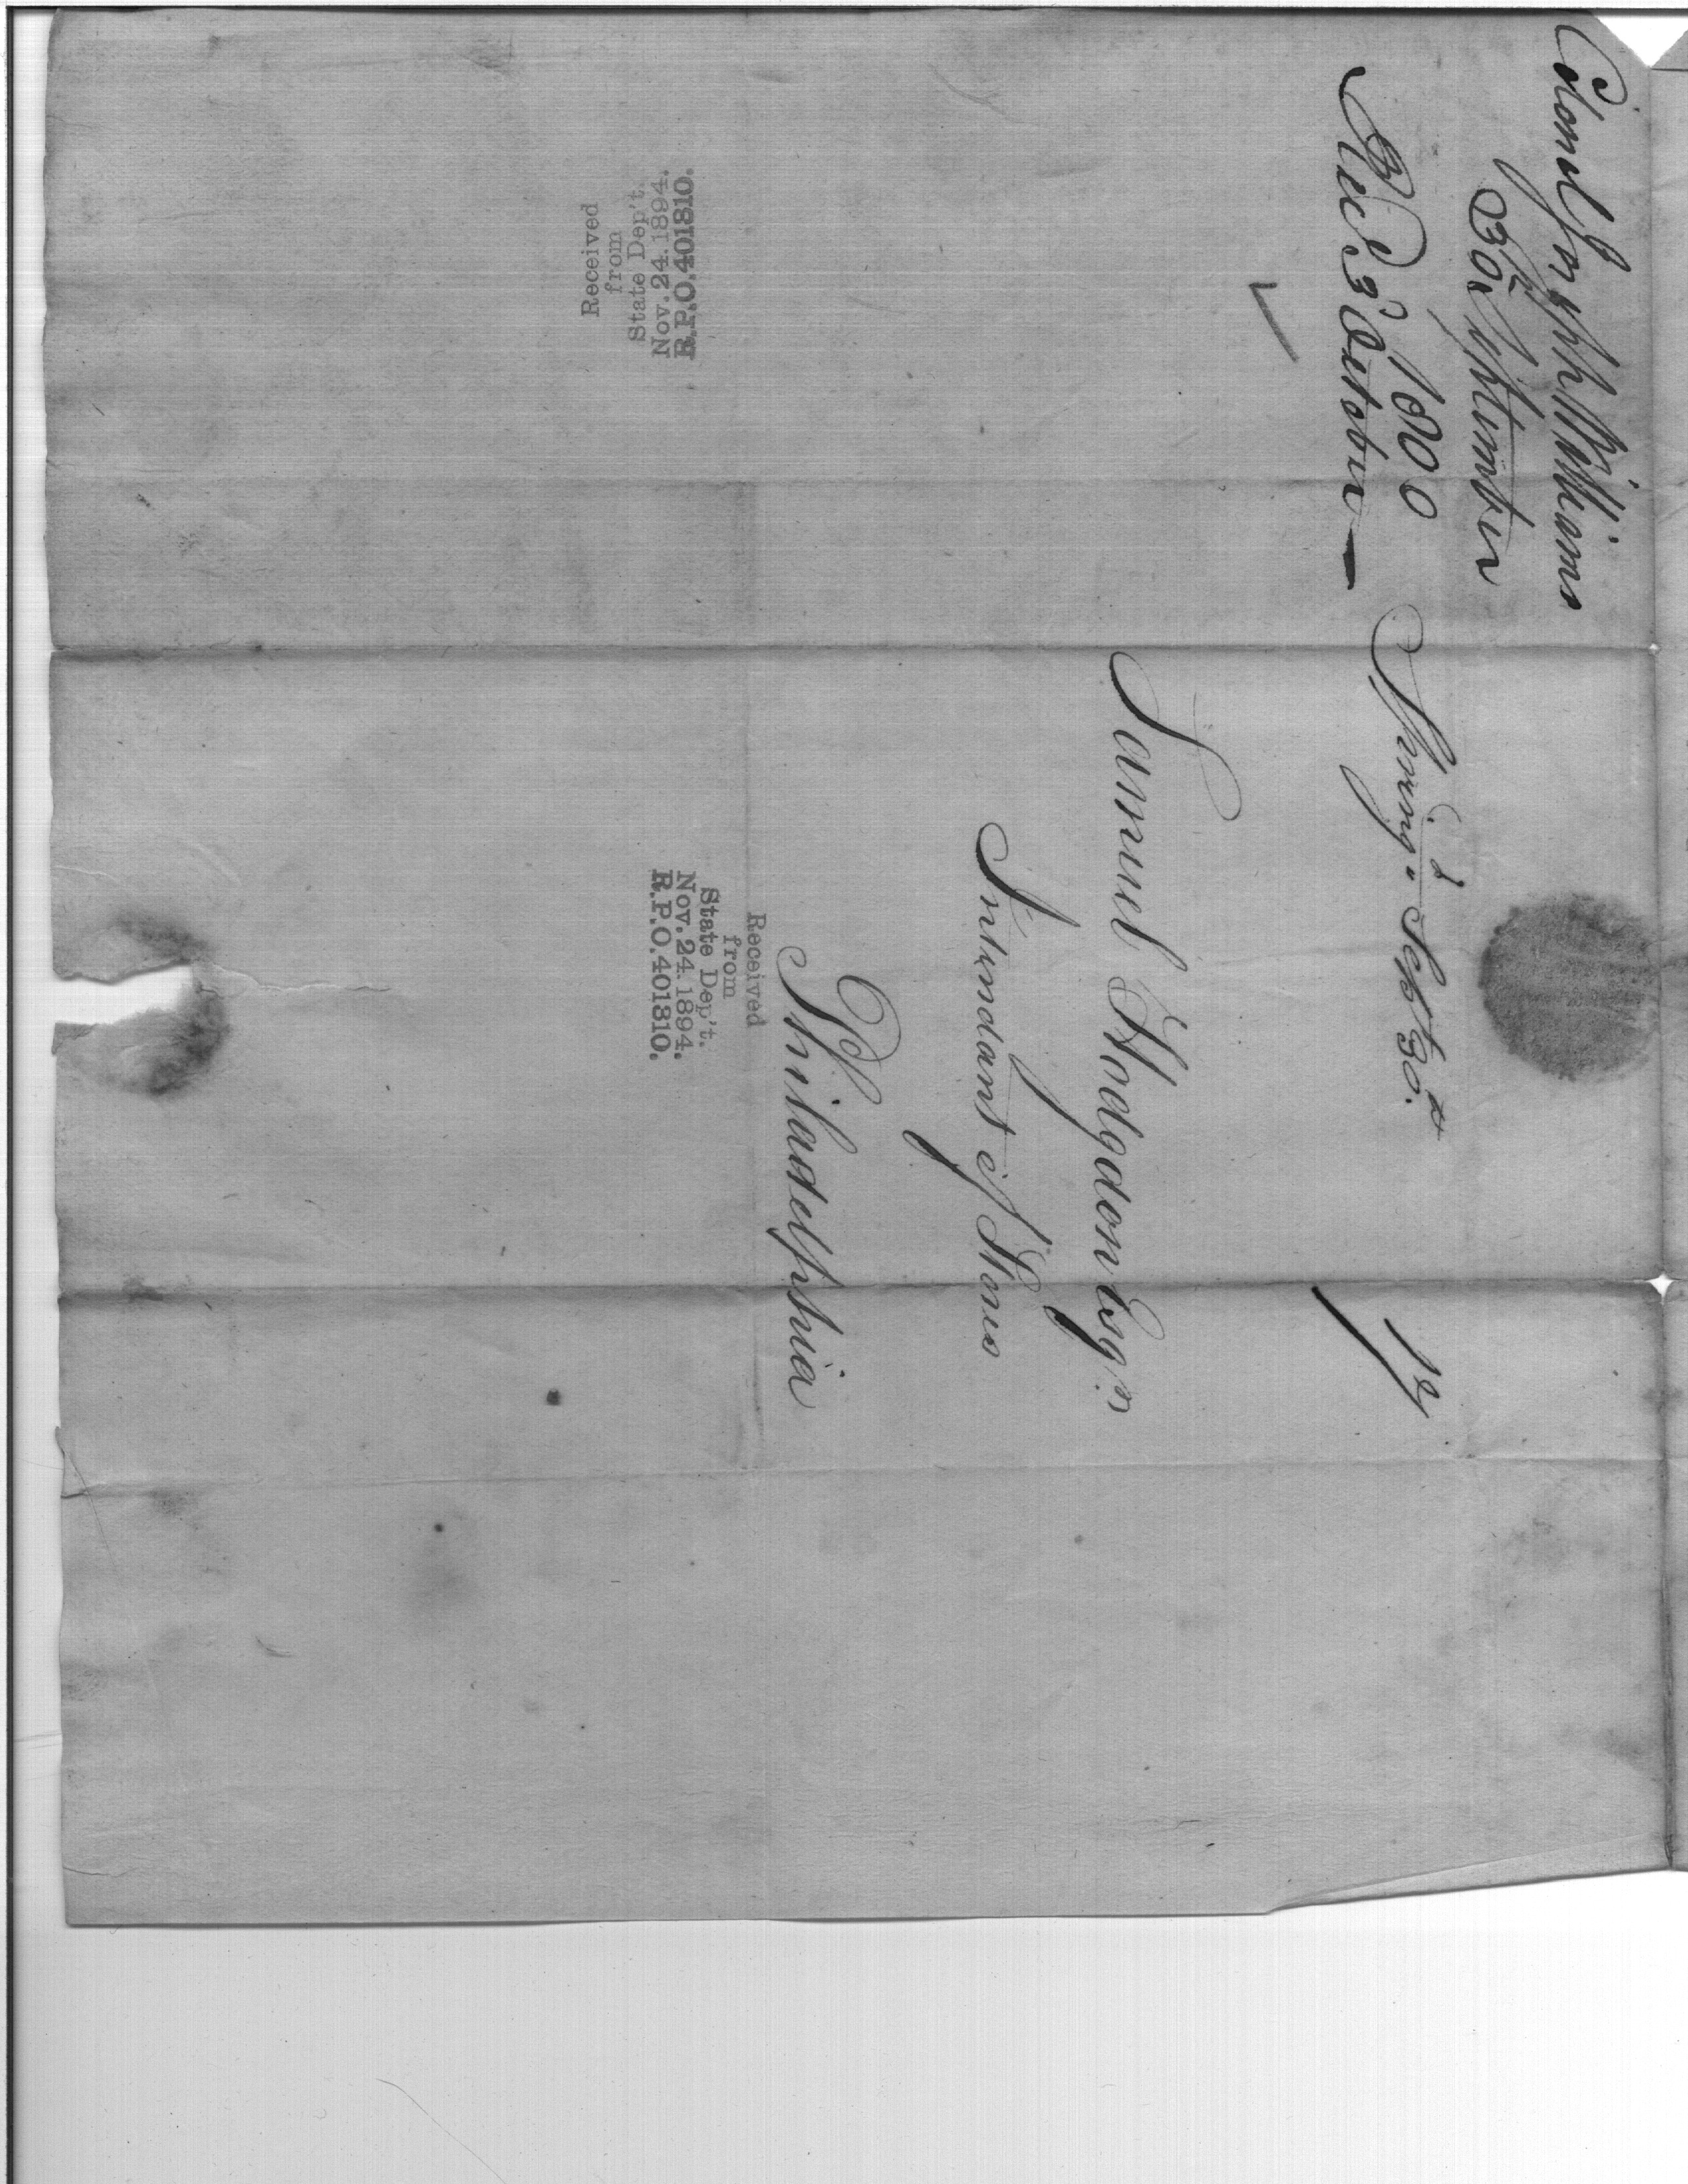 Colonel Joseph Williams
30th September
1800
Recd 3d October —
Spring.d Sept 30th
17
Samuel Hodgdon Esqr
Intendant of Stores
Philadelphia
Received
from
State Dep't.
Nov. 24. 1894.
R.P.O. 401810.
Received
from
State Dep't.
Nov. 24. 1894.
R.P.O. 401810.